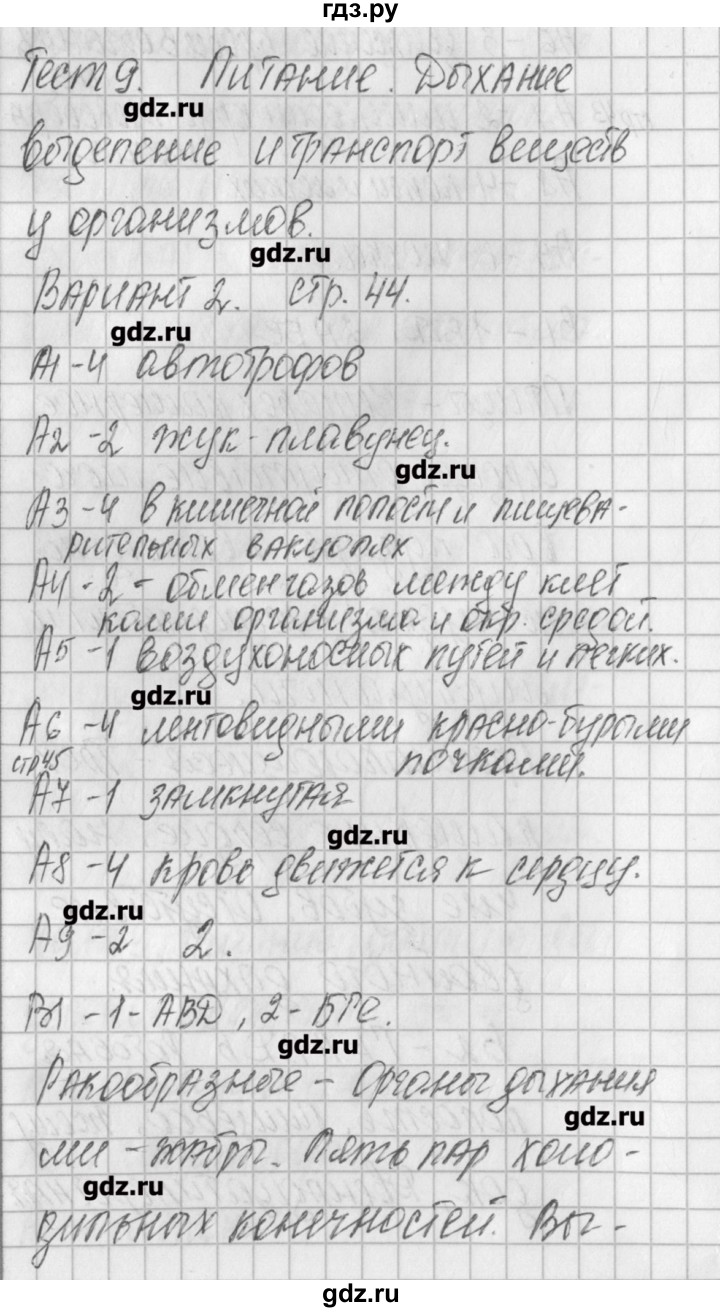 гдз.ру
Тест 9. Питание. Дыхание
gdz.ru
выделение и транспорт веществ
у организмов.
gdz.ru
Вариант 2. стр. 44.
gdz.ru
А1 - 4 автотрофов
А2 - 2 жук - плавунец.
gdz.ru
А3 - 4 в кишечной полости и пищева-
рительных вакуолях
А4 - 2 - обмен газов между клет
ками организма и окр. средой.
А5 - 1 воздухоносных путей и легких.
gdz.ru
А6 - 4 лентовидными красно-бурыми
стр45 почками.
А7 - 1 замкнутая
gdz.ru
А8 - 4 кровь движется к сердцу.
gdz.ru
А9 - 2 2.
В1 - 1 - АВД, 2 - БГЕ.
gdz.ru
Ракообразные - Органы дыхания
gdz.ru
ми - жабры. Пять пар хо
gdz.ru
дильных конечностей. Вы -
gdz.ru